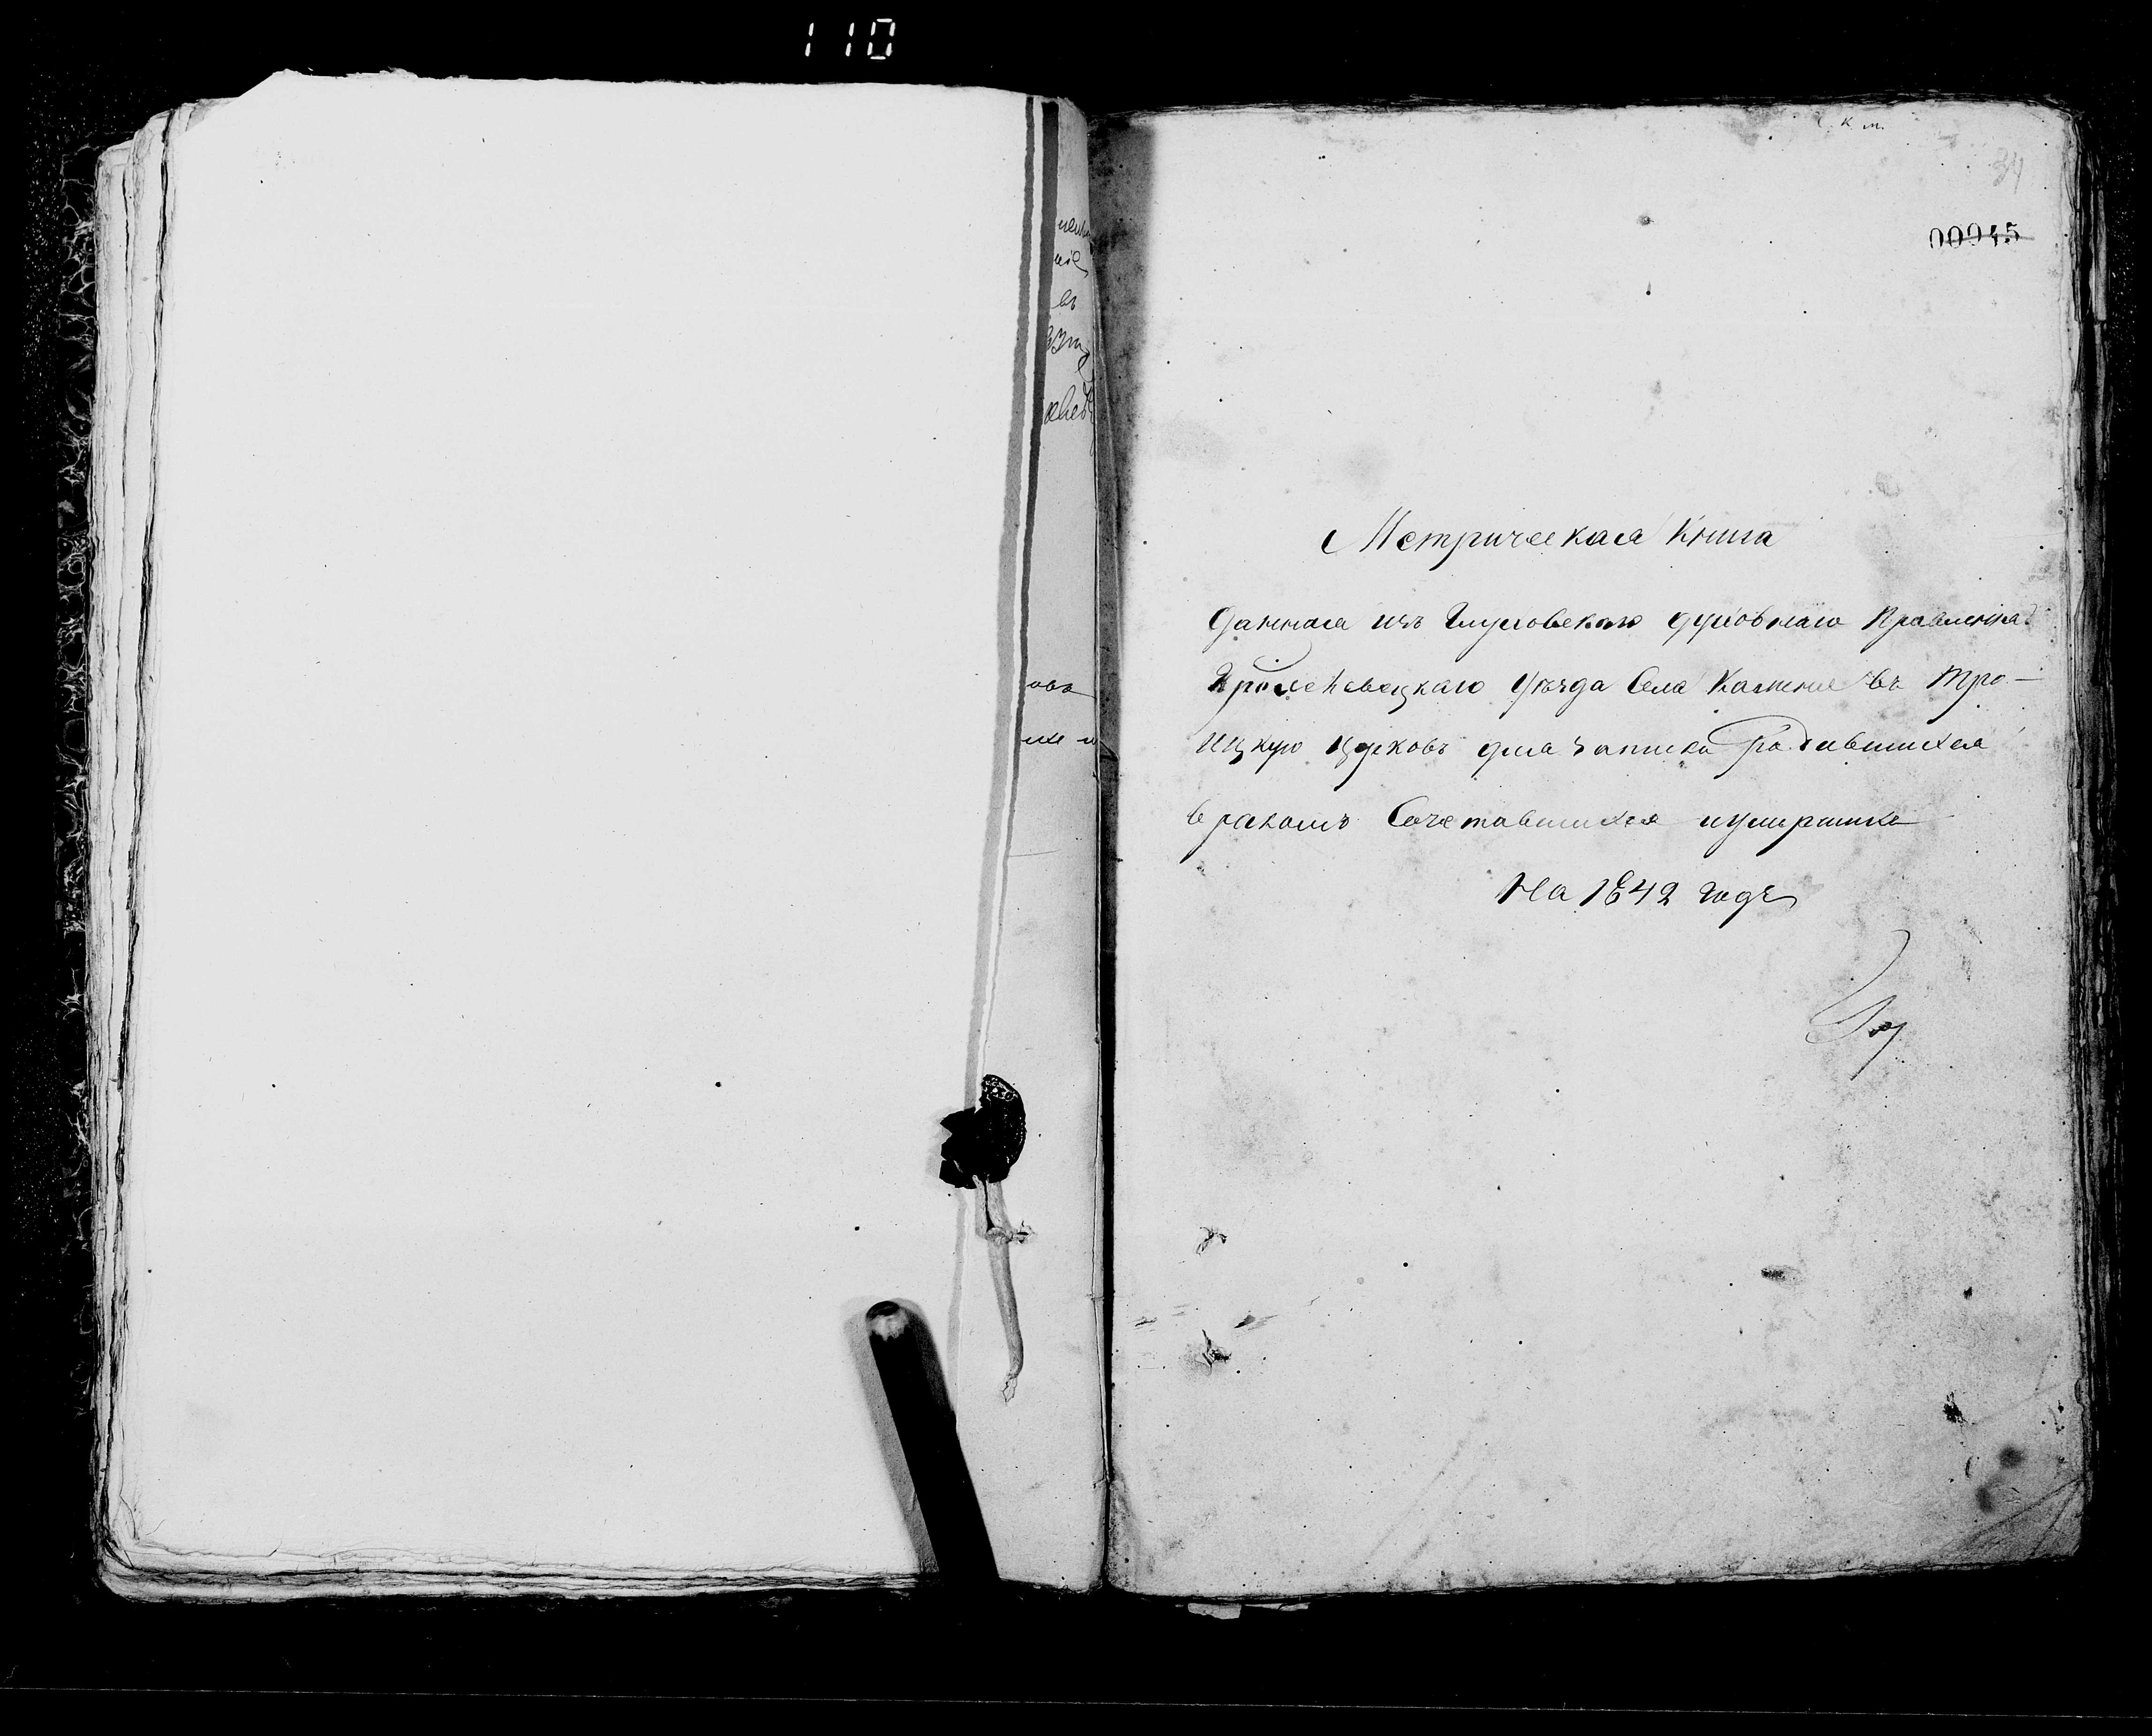 110
34
00945
Метрическая Книга
данная изъ Глуховскаго духовнаго Правленія
Кролевецкаго Уѣзда Села Каменя въ Тро-
ицкую Церковь для записки родившихся
бракомъ Сочетавшихся иумершихъ
На 1842 годъ